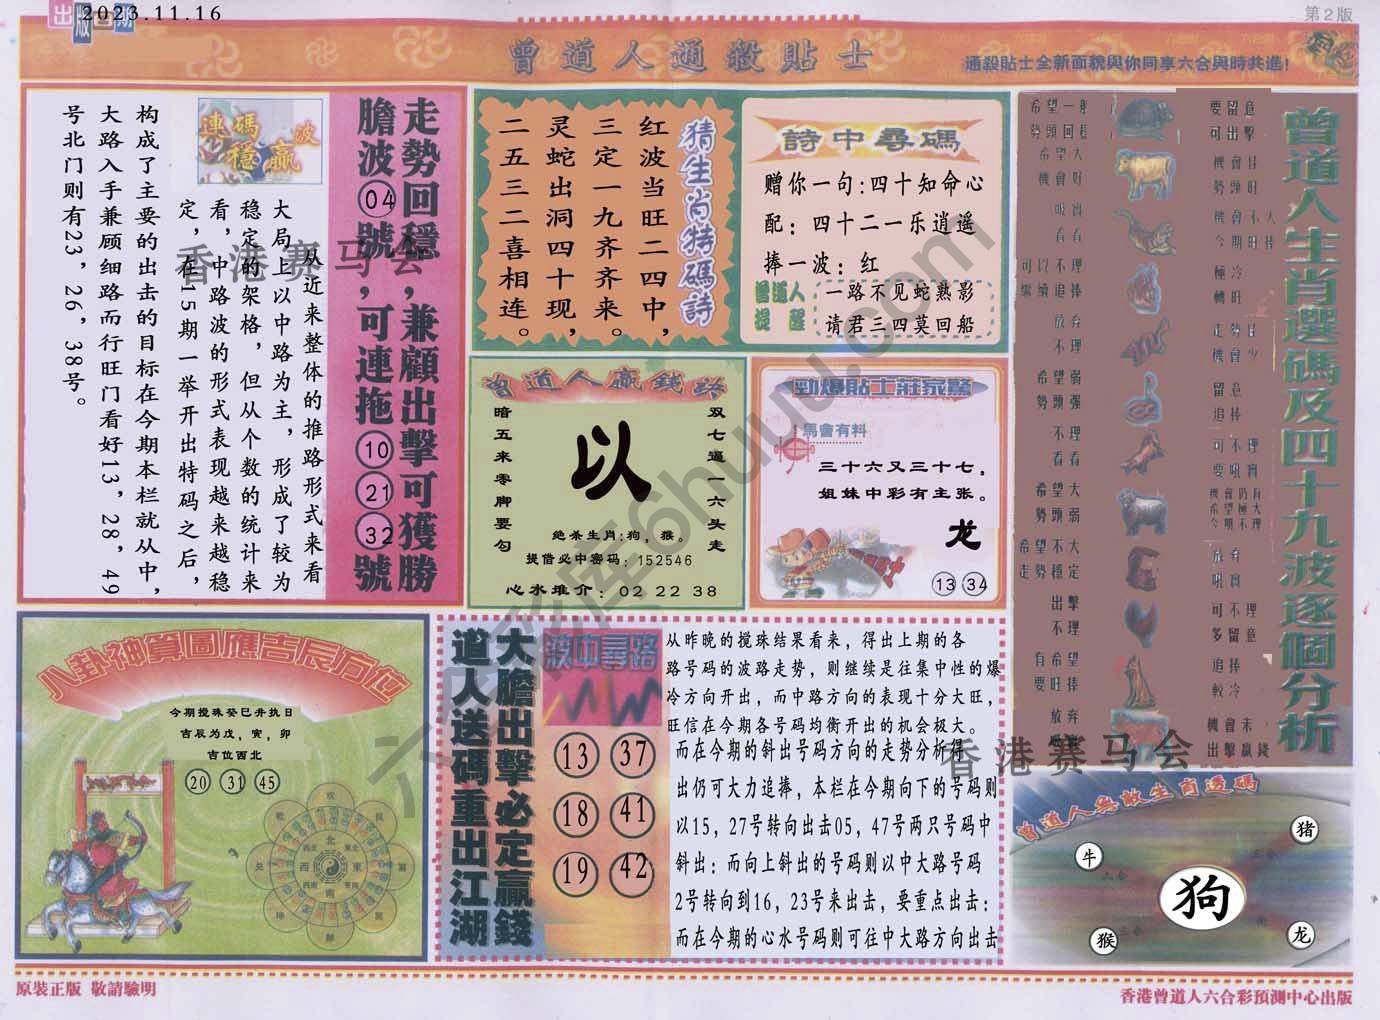 出版日期
2023.11.16
第2版
曾道人通殺貼士
通殺貼士全新面貌與你同享六合與時共進!
走勢回穩,兼顧出擊可獲勝
膽波04號,可連拖10 21 32號
連碼波
穩贏
从近来整体的推路形式来看
大局上以中路为主,形成了较为
稳定的架格,但从个数的统计来
看,中路波的形式表现越来越稳
定,在15期一举开出特码之后,
构成了主要的出击的目标在今期本栏就从中,
大路入手兼顾细路而行旺门看好13,28,49
号北门则有23,26,38号。
猜生肖特碼詩
红波当旺二四中,
三定一九齐齐来。
灵蛇出洞四十现,
二五三二喜相连。
詩中尋碼
赠你一句:四十知命心
配:四十二一乐逍遥
捧一波:红
曾道人
提醒
一路不见蛇熟影
请君三四莫回船
曾道人贏錢詩
双七逼一六头走
暗五来零脚要勾
以
绝杀生肖:狗,猴。
提借必中密码:152546
心水堆介:02 22 38
勁爆貼士莊家驚
馬會有料
三十六又三十七,
姐妹中彩有主张。
龙
13 34
曾道人生肖選碼及四十九波逐個分析
希望一般
勢頭回穩
要留意
可出擊
希望大
機會好
機會佳
勢頭旺
看看
機會不大
今期旺捧
可以不理
繼續追捧
極冷
轉旺
放弃
不理
走勢佳
機會少
希望弱
勢頭强
留意
追捧
不理
看看
可不理
要吼實
希望大
勢頭弱
機會仍有
希望極大
今期不理
希望不大
走勢穩定
放弃
吼實
出擊
不理
可不理
多留意
有希望
要旺捧
追捧
較冷
放弃
機會未
出擊贏錢
八卦神算圖應吉辰方位
今期搅珠癸巳并执日
吉辰为戊,寅,卯
吉位西北
20 31 45
大膽出擊必定贏錢
道人送碼重出江湖
波中尋路
13 37
18 41
19 42
从昨晚的搅珠结果看来,得出上期的各
路号码的波路走势,则继续是往集中性的爆
冷方向开出,而中路方向的表现十分大旺,
旺信在今期各号码均衡开出的机会极大。
而在今期的斜出号码方向的走势分析得
出仍可大力追捧,本栏在今期向下的号码则
以15,27号转向出击05,47号两只号码中
斜出:而向上斜出的号码则以中大路号码
2号转向到16,23号来出击,要重点出击:
而在今期的心水号码则可往中大路方向出击
曾道人無敵生肖透碼
猪
牛
狗
猴
龙
原裝正版 敬請驗明
香港曾道人六合彩預測中心出版
香港赛马会
香港赛马会
六合彩库6huuu.com